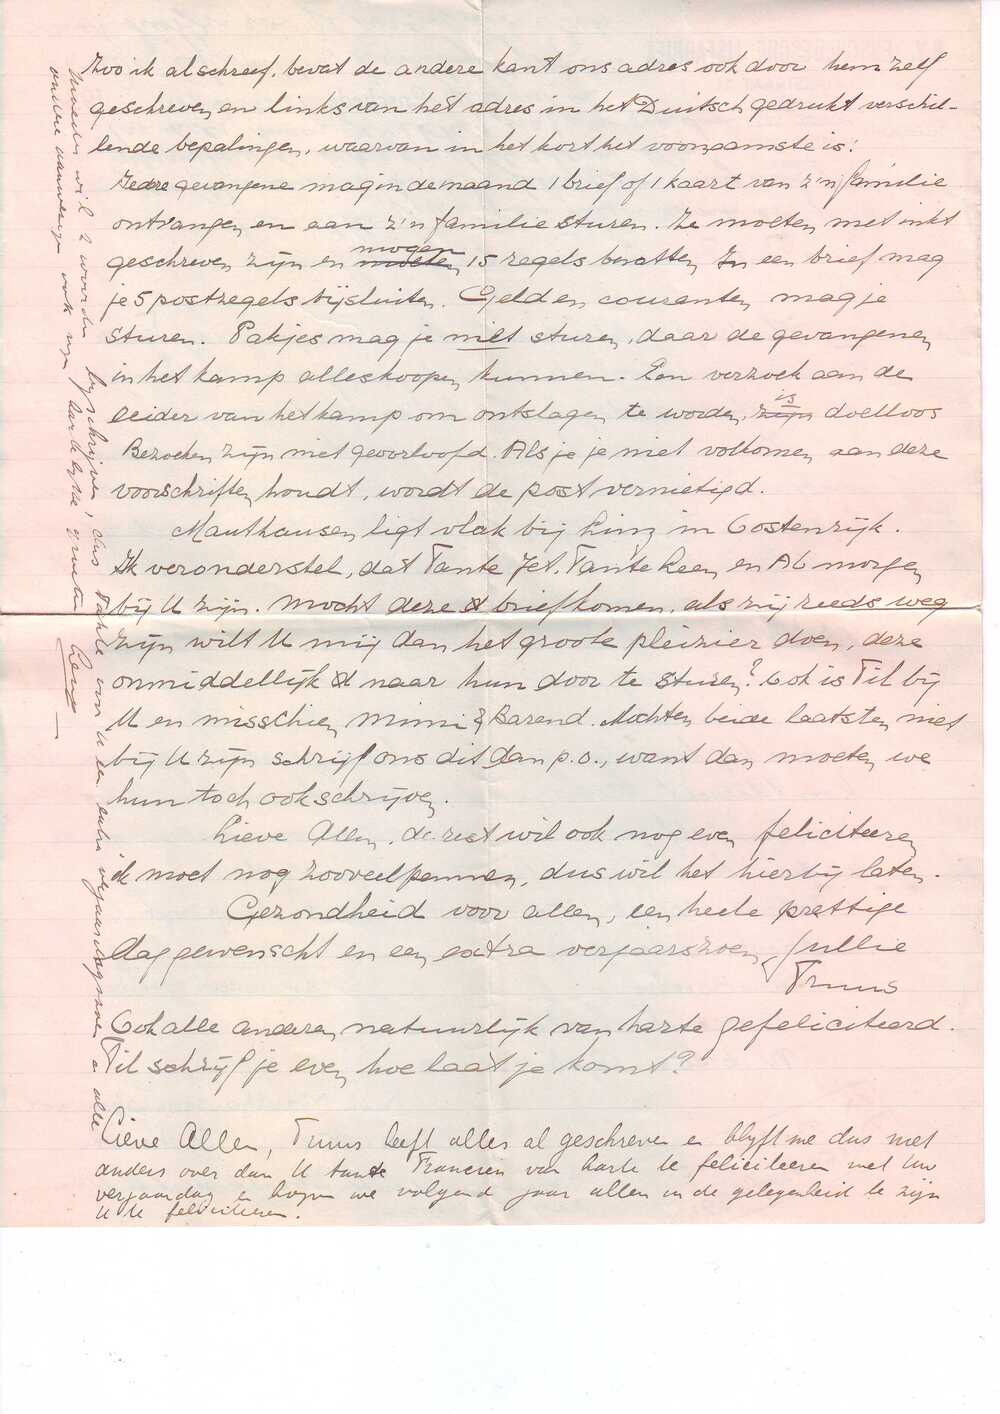 Zoo ik al schreef, bevat de andere kant ons adres ook door hem zelf
geschreven en links van het adres in het Duitsch gedrukt verschil-
lende bepalingen, waarvan in het kort het voornaamste is:
Iedre gevangene mag in de maand 1 brief of 1 kaart van z'n familie
ontvangen en aan z'n familie sturen. Ze moeten met inkt
geschreven zijn en moeten mogen 15 regels bevatten. In een brief mag
je 5 postzegels bijsluiten. Geld en couranten mag je
sturen. Pakjes mag je niet sturen, daar de gevangenen
in het kamp alles koopen kunnen. Een verzoek aan de
leider van het kamp om ontslagen te worden, zijn is doelloos
Bezoeken zijn niet geoorloofd. Als je je niet volkomen aan deze
voorschriften houdt, wordt de post vernietigd.
Mauthausen ligt vlak bij Linz in Oostenrijk.
Ik veronderstel, dat Tante Jet, Tante Leen en Ab morgen
bij U zijn. Mocht deze brief komen, als zij reeds weg
zijn wilt U mij dan het groote pleizier doen, deze
onmiddellijk naar hun door te sturen? Ook is Til bij
U en misschien Mimi & Barend. Mochten beide laatsten niet
bij U zijn schrijf ons dit dan p.o., want dan moeten we
hun toch ook schrijven.
Lieve Allen, de rest wil ook nog even feliciteeren
ik moet nog zooveel pennen, dus wil het hierbij laten.
Gezondheid voor allen, een heele prettige
dag gewenscht en een extra verjaarszoen, Jullie
Truus
Ook alle anderen natuurlijk van harte gefeliciteerd.
Til schrijf je even hoe laat je komt?
Lieve Allen, Truus heeft alles al geschreven en blijft me dus niet
anders over dan U tante Francien van harte te feliciteeren met Uw
verjaardag en hopen we volgend jaar allen in de gelegenheid te zijn
U te feliciteren.
wil 2 woorden bijschrijven, dus tante voor U een extra verjaardagszoen en alle
ook van hartelijke groeten